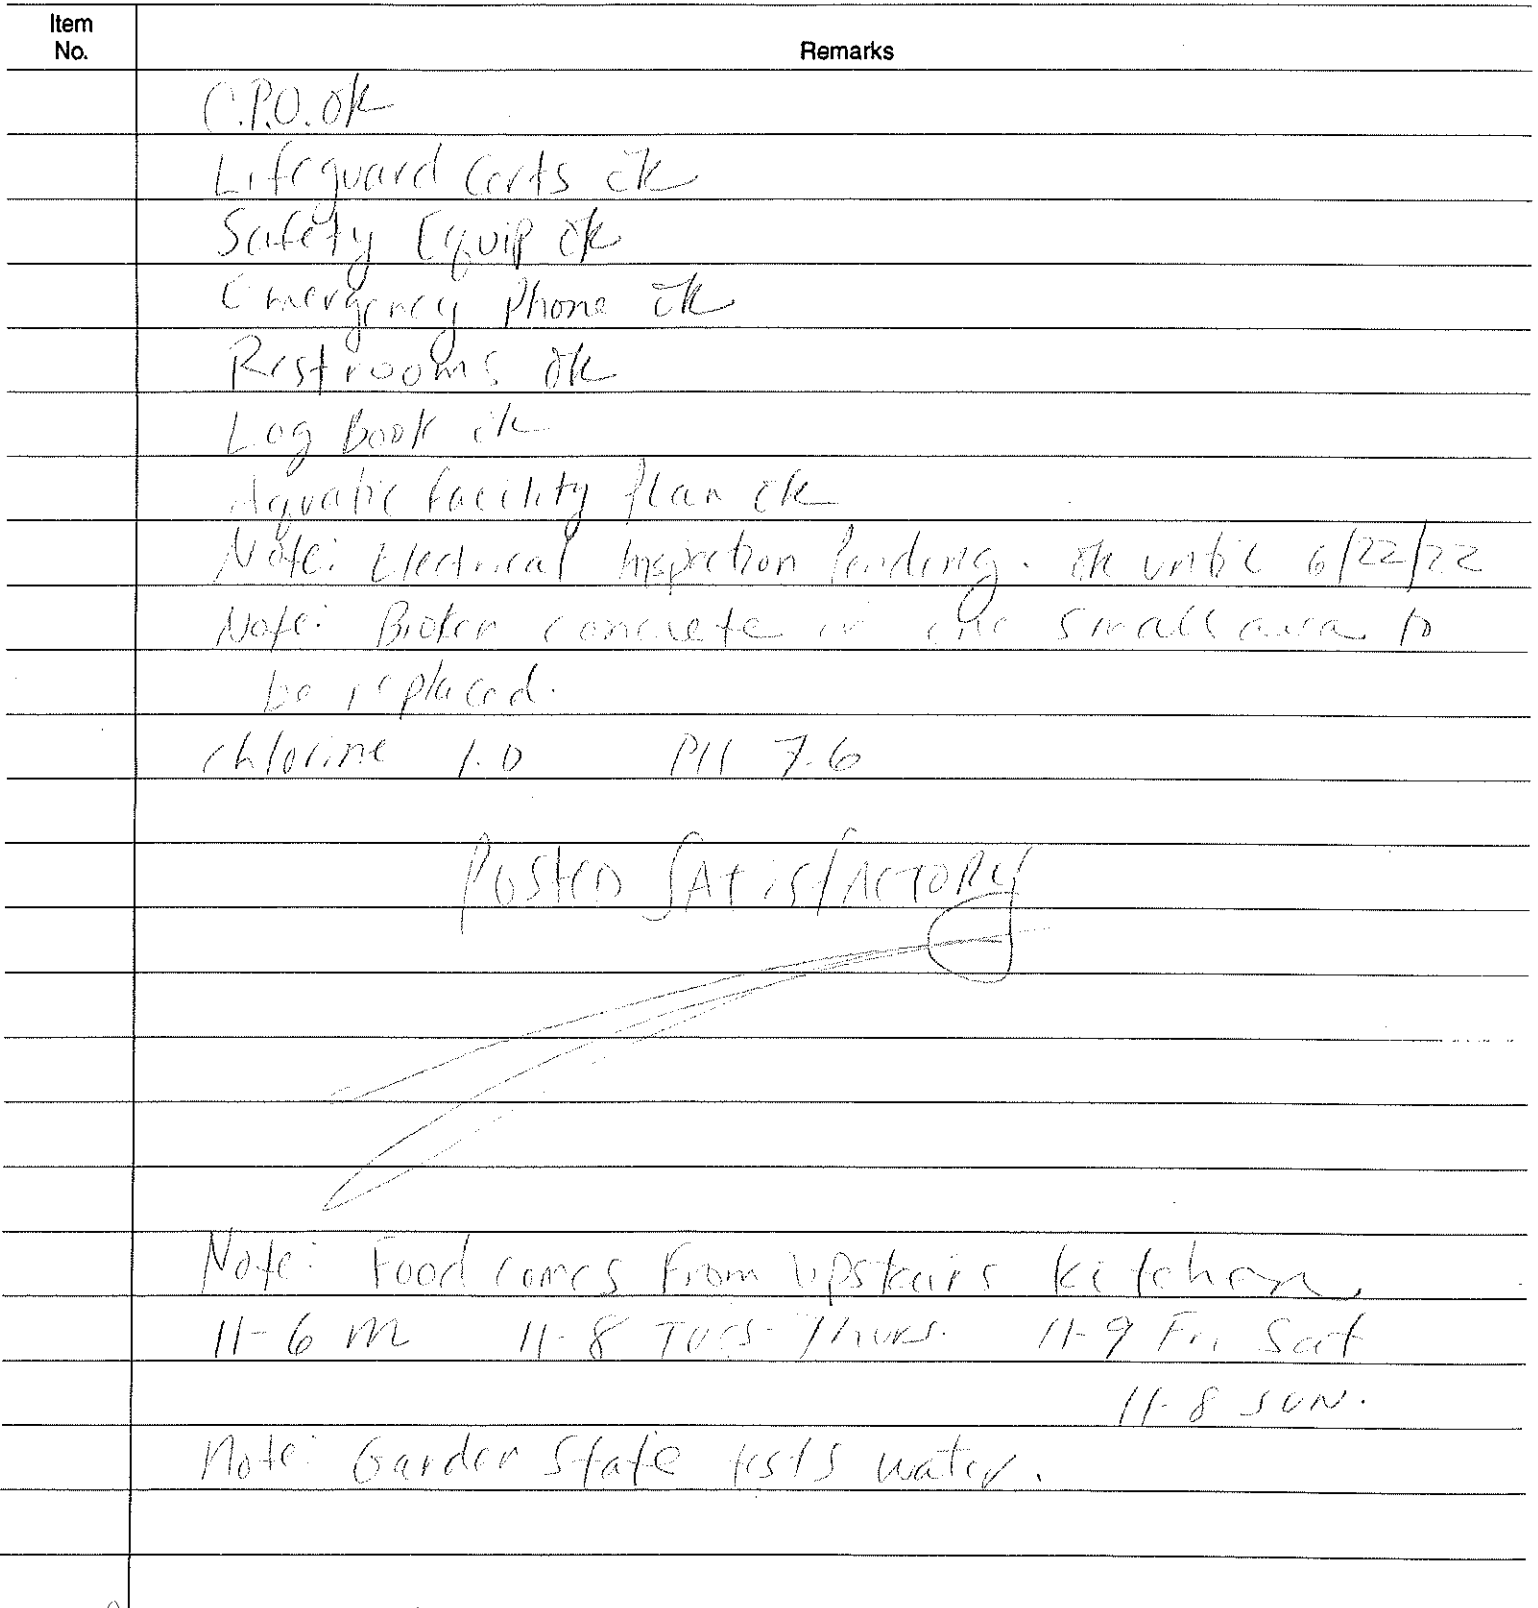 Item
No.
Remarks
C.P.O. ok
Lifeguard Certs ok
Safety Equip ok
Emergency Phone ok
Restrooms ok
Log Book ok
Aquatic Facility Plan ok
Note: Electrical Inspection Pending. ok until 6/22/22
Note: Broken concrete in one small area to
be replaced.
chlorine 1.0 PH 7.6
POSTED SATISFACTORY
Note: Food comes From Upstairs Kitchen
11-6 M 11-8 Tues-Thurs. 11-9 Fri Sat
11-8 SUN.
Note: Garden State tests water.